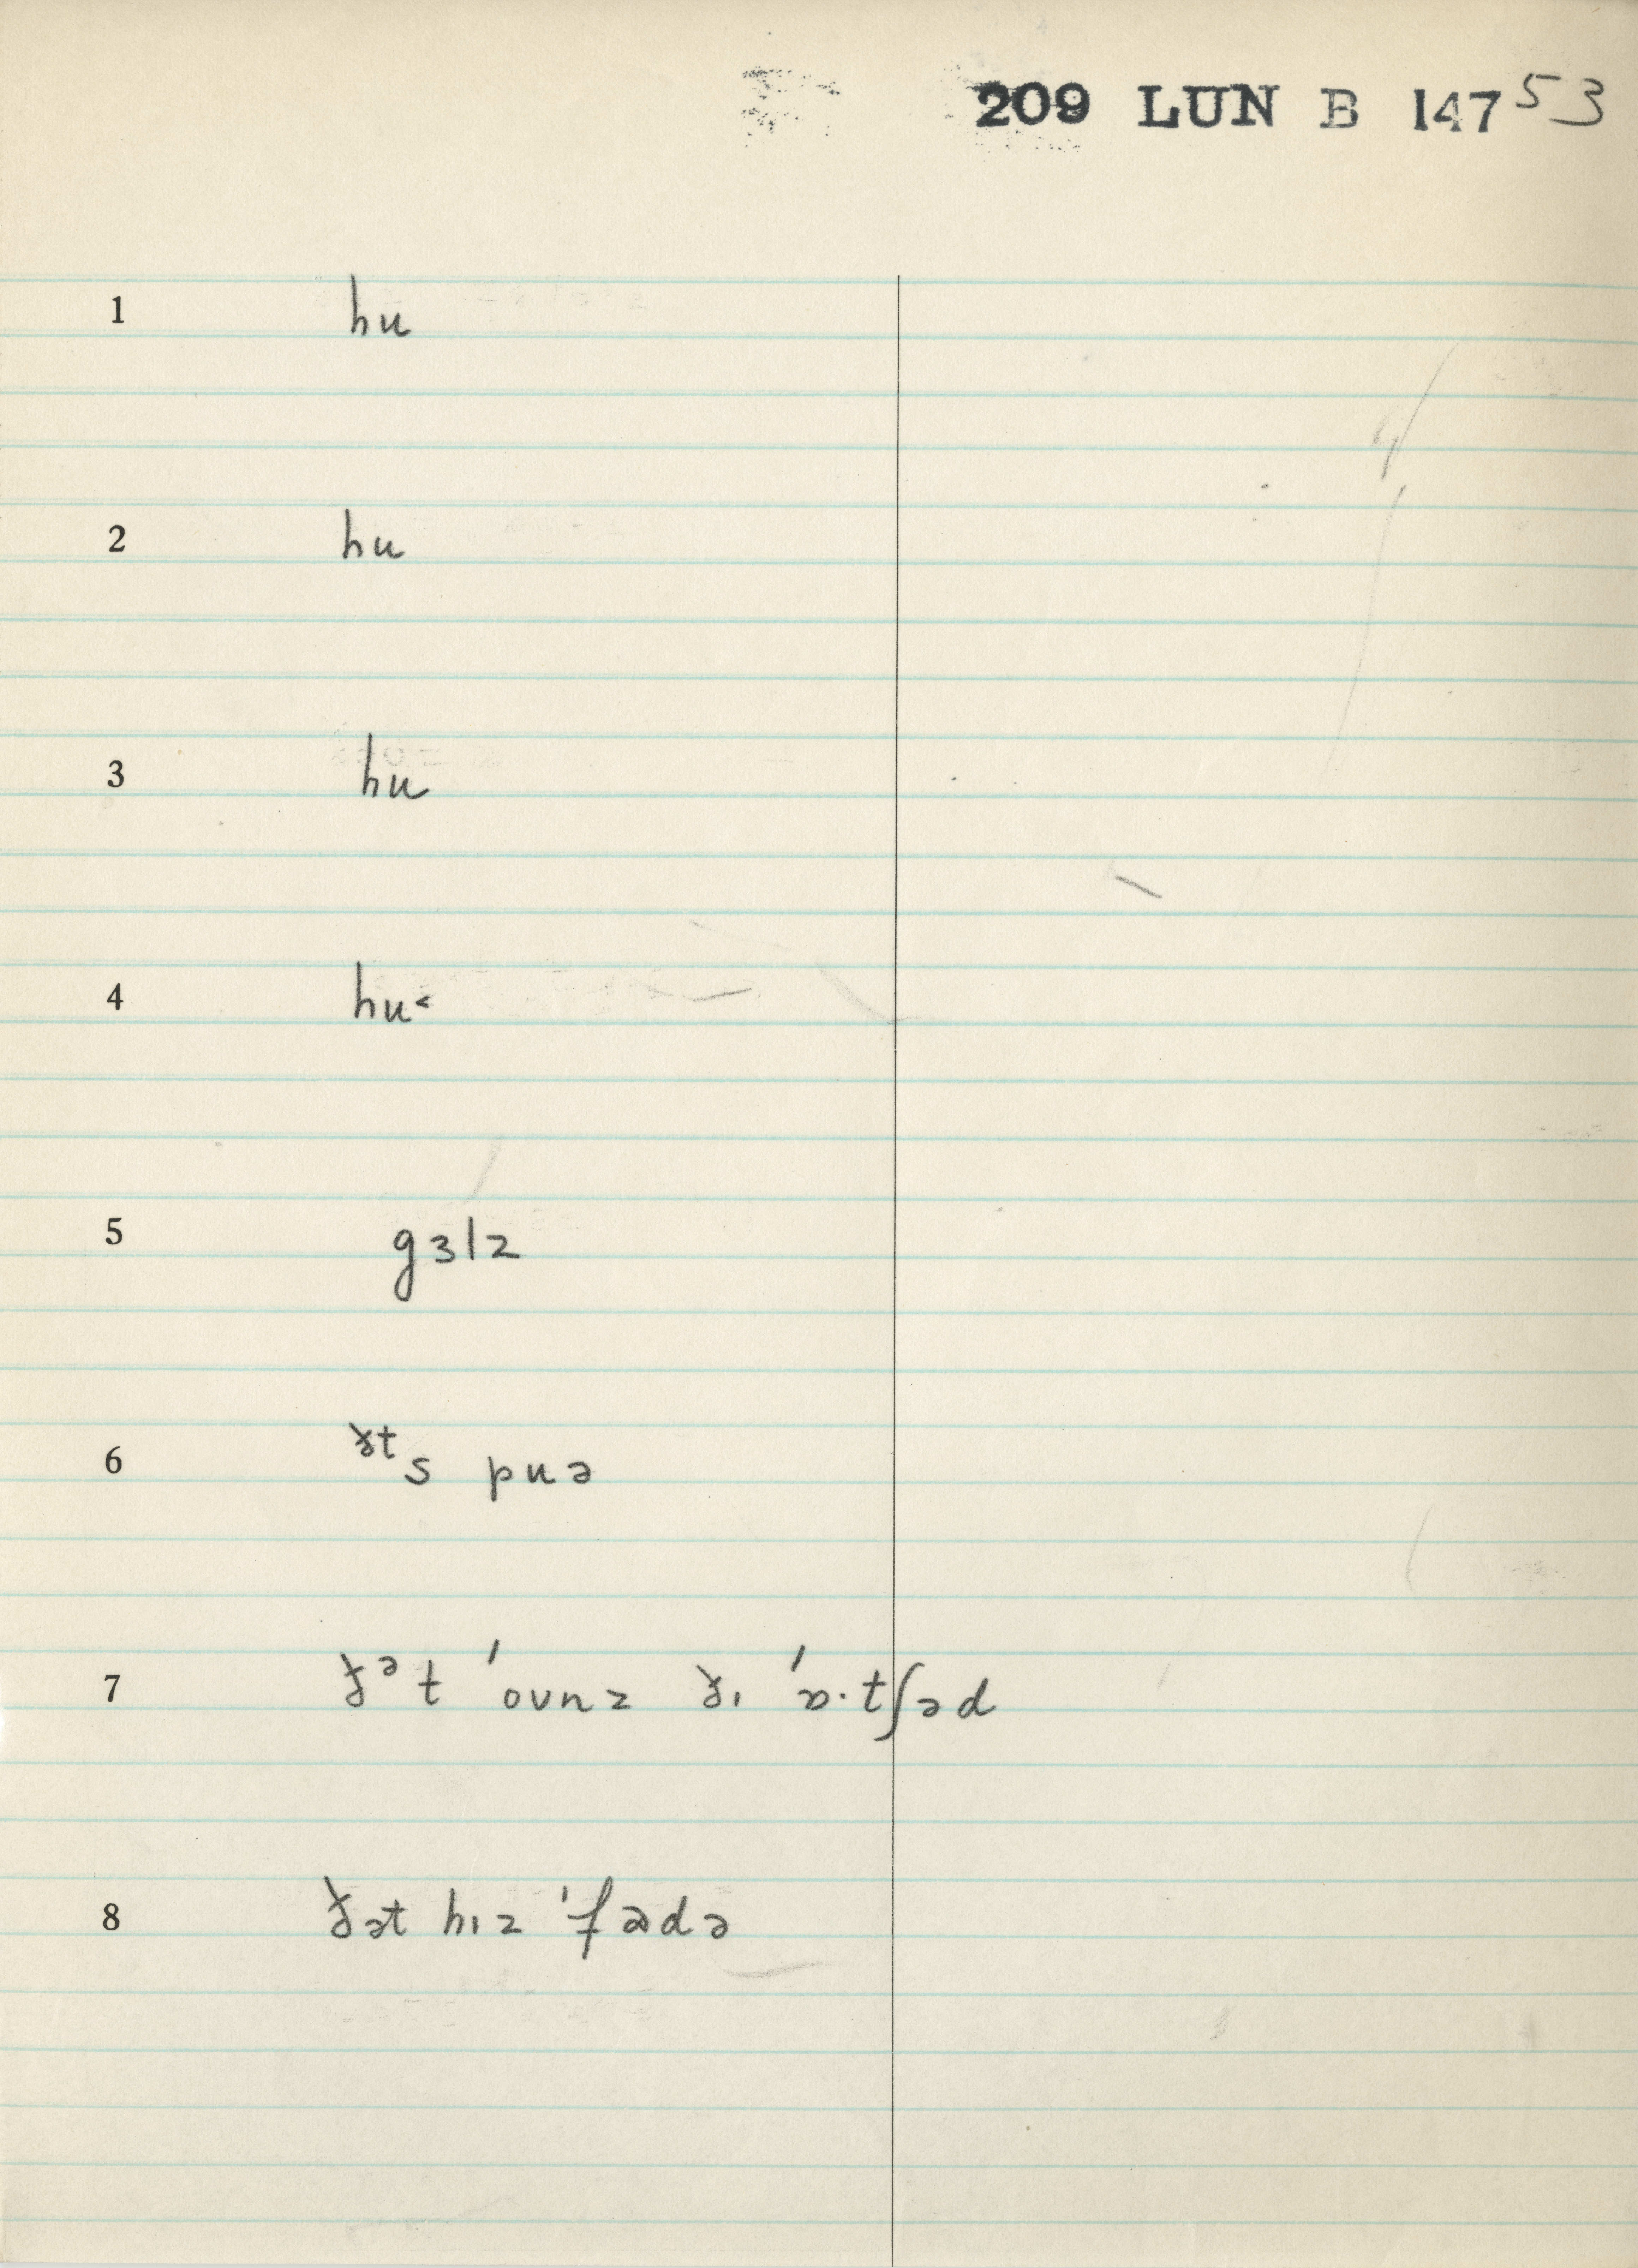 209 LUN B 147 53
1 hu
2 hu
3 hu
4 hu˂
5 gɜlz
6 ðᵗs puə
7 ðᵊt ˈoʊnz ðɪ ˈɒ·tʃəd
8 ðət hɪz ˈfadə